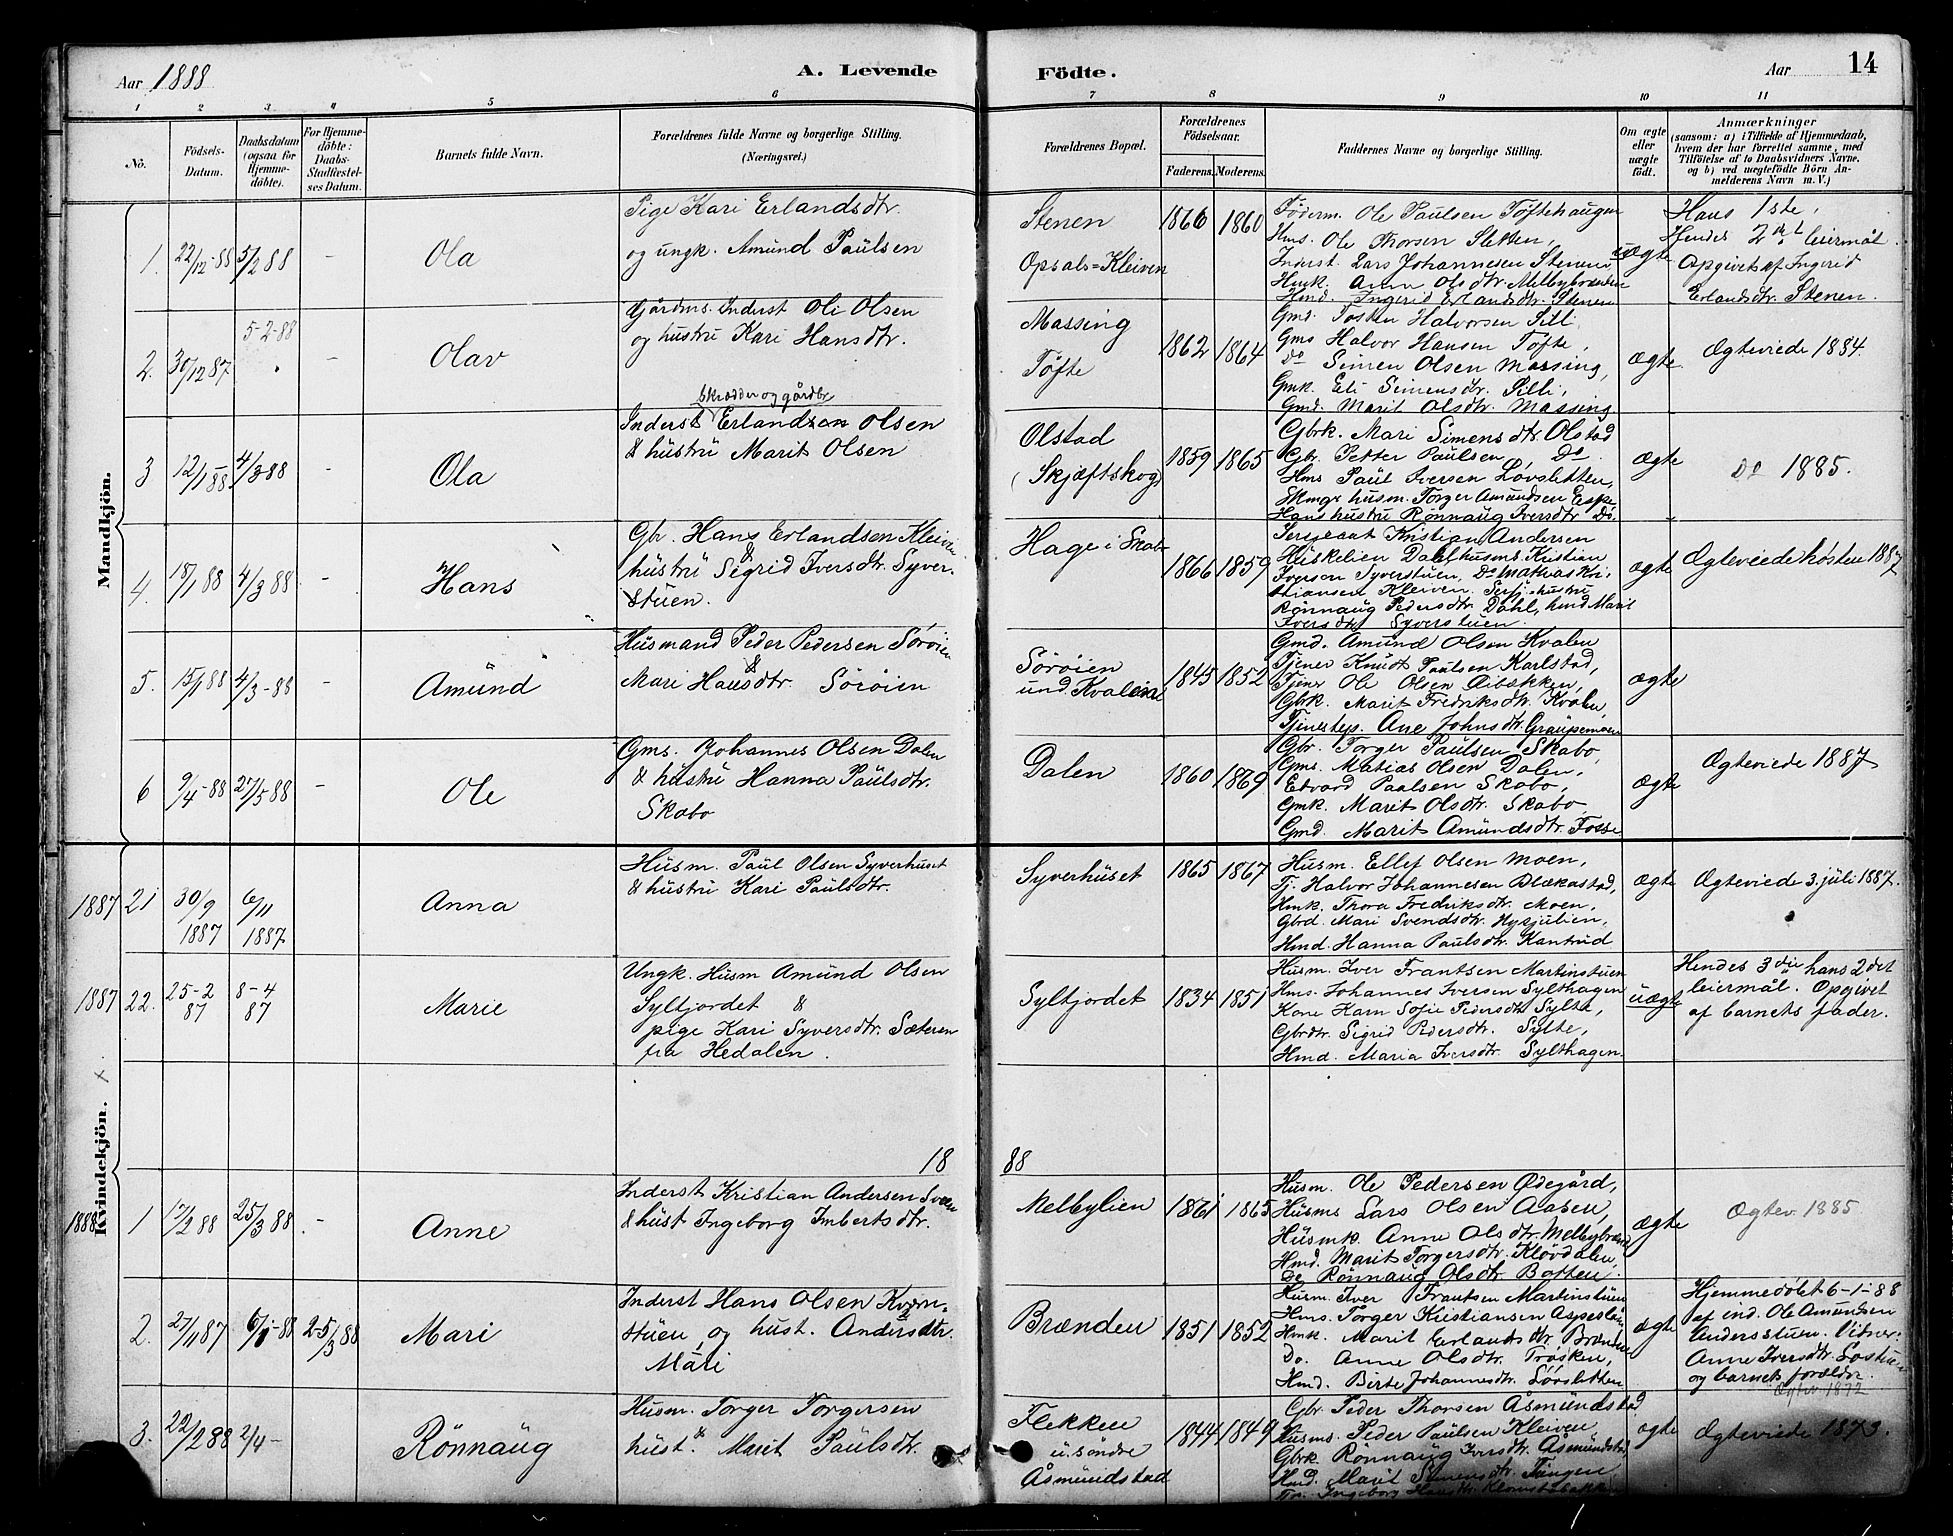 Aar 1888
A. Levende
Födte.
Aar
14
1 2 3 4 5 6 7 8 9 10 11
No.
Födsels-Datum.
Daabsdatum (ogsaa for Hjemme-döbte).
For Hjemme-döbte: Daabs-Stadfæstel-ses Datum.
Barnets fulde Navn.
Forældrenes fulde Navne og borgerlige Stilling. (Næringsvei.)
Forældrenes Bopæl.
Forældrenes Födselsaar.
Faderens. Moderens.
Faddernes Navne og borgerlige Stilling.
Om ægte eller uægte födt.
Anmærkninger
(saasom: a) i Tilfælde af Hjemmedaab,
hvem der har forrettet samme, med
Tilföielse af to Daabsvidners Navne.
og b) ved uægtefödte Börn An-
melderens Navn m. V.)
Mandkjön.
1. 22/12-88 5/2 88 - Ola
Pige Kari Erlandsdtr.
og ungk. Amund Paulsen
Stenen
Opsals=Kleiven
1866 1860
Föderm. Ole Paulsen Töftehaugen
Hms. Ole Thorsen Sletten,
Inderst. Lars Johannesen Stenen
Husk. Anne Olsdtr. Melbybrænden
Hmd. Ingerid Erlandsdtr. Stenen
uægte
Hans 1ste,
Hendes 2det leiermål.
Opgivet af Ingerid
Erlandsdtr. Stenen.
2. 30/12 87 5-2-88 - Olav
Gårdms. Inderst Ole Olsen
og hustru Kari Hansdtr.
Massing
Töfte
1862 1864
Gmd. Tosten Halvorsen Silli,
Gms Halvor Hansen Töfte,
Do Simen Olsen Massing,
Gmk. Eli Simensdtr. Silli,
Gmd. Marit Olsdtr. Massing
ægte
Ægteviede 1884.
3 12/1 88 4/3-88 - Ola
Skrædder og gårdbr
Inderst Erlandxxn Olsen
& hustru Marit Olsen
Olstad
(Skjæftskog)
1859 1865
Gbrk. Mari Simensdtr. Olstad
Gbr. Petter Paulsen Do.
Hms Paul Iversen Lövsletten,
Skmgr husm. Torger Amundsen Espe
Hans hustru Rönnaug Iversdtr Do.
ægte
Do 1885.
4. 18/1 88 4/3 88 - Hans
Gbr. Hans Erlandsen Kleiven
&
hustru Sigrid Iversdtr. Syver-
stuen.
Hage i Skab-
1866 1859
Sergeant Kristian Andersen
Huskelien Dahl husms. Kristian
Iversen Syverstuen, Do Mathias Kri-
stiansen Kleiven. Serj. hustru
Rönnaug Pedersdtr Dahl, hmd Marit
Iversdtr Syverstuen.
ægte
Ægteviede hösten 1887
5. 15/1 88 4/3-88 - Amund
Husmand Peder Pedersen Söröien
&
Mari Hansdtr. Söröien
Söröien
und. Kvalene
1845 1852
Gmd. Amund Olsen Kvalen
Tjener Knudt Paulsen Karlstad,
Tjener Ole Olsen Aibækken,
Gbrk. Marit Fredriksdtr. Kvalen,
Tjenestep. Ane Johnsdtr. Graupemoen
ægte
6 9/4-88 27/5 88 - Ole
Gms. Johannes Olsen Dalen
& hustru Hanna Paulsdtr.
Skabo
Dalen
1860 1869
Gbr. Torger Paulsen Skabo,
Gms. Matias Olsen Dalen,
Edvard Paalsen Skabo,
Gmk. Marit Olsdtr. Skabo
Gmd. Marit Amundsdtr. Fosse
ægte
Ægteviede 1887
1887 21 30/9 1887 6/11 1887 Anna
Husm. Paul Olsen Syverhuset
& hustru Kari Paulsdtr.
Syverhuset
1865 1867
Husm. Ellef Olsen Moen,
Tj. Halvor Johannesen Blækastad,
Hmk. Thora Fredriksdtr. Moen,
Gbrd. Mari Svendsdtr. Nysjulien,
Hmd. Hanna Paulsdtr. Kantrud
ægte
Ægteviede 3. juli 1887.
1887 22. 25-2 87 8-4 87 Marie
Ungk. Husm Amund Olsen
Syltjordet &
pige Kari Syversdtr. Sæteren
fra Hedalen.
Syltjordet
1834 1851
Husm. Iver Frantsen Martinstuen
Hms. Johannes Iversen Sylthagen
Kone Karn Sofie Pedersdtr Sylte,
Gbrdtr. Sigrid Pedersdtr. Sylte,
Hmd. Maria Iversdtr. Sylthagen.
uægte
Hendes 3die hans 2det
leiermål. Opgivet
af barnets fader.
1888
Kvindekjön. x
1888 1 17/2 88 25/3 88 - Anne
Inderst Kristian Andersen Sveen
& hust Ingeborg Imbertsdtr.
Melbylien
1861 1865
Husm. Ole Pedersen Ødegård,
Husms Lars Olsen Aasen,
Husmk. Anne Olsdtr. Melbybrænd
Hmd. Marit Torgersdtr. Klövdalen,
Do Rönnaug Olsdtr. Boften.
ægte
Ægtev. 1885.
2. 27/11 87 6/1-88 25/3 88 Mari
Inderst Hans Olsen Kværn-
stuen og hust. Andersdtr.
Mari
Brænden
1851 1852
Husm. Iver Frantsen Martinstuen
Hms. Torger Kristiansen Aspeslån
Hmk. Marit Erlandsdtr. Brænden
Do. Anne Olsdtr. Trösken,
Hmd. Birte Johannesdtr. Lövsletten
ægte
Hjemmedöbt 6-1-88
af ind. Ole Amundsen
Andersstuen. Vidner:
Anne Iversdtr. Lostuen
og barnets forældre.
Ægtev. 1872
3. 22/2 88 2/4- Rönnaug
Husm. Torger Torgersen
&
hust. Marit Paulsdtr.
Flekken
u. söndre
Åsmundstad
1844 1849
Gbr. Peder Thorsen Åsmundstad
Husms. Peder Paulsen Kleiven
Gbrk. Rönnaug Iversdtr. Åsmundstad
Hmd. Marit Simensdtr. Tangen
Do. Ingeborg Hansdtr.
ægte
Ægteviede 1873.